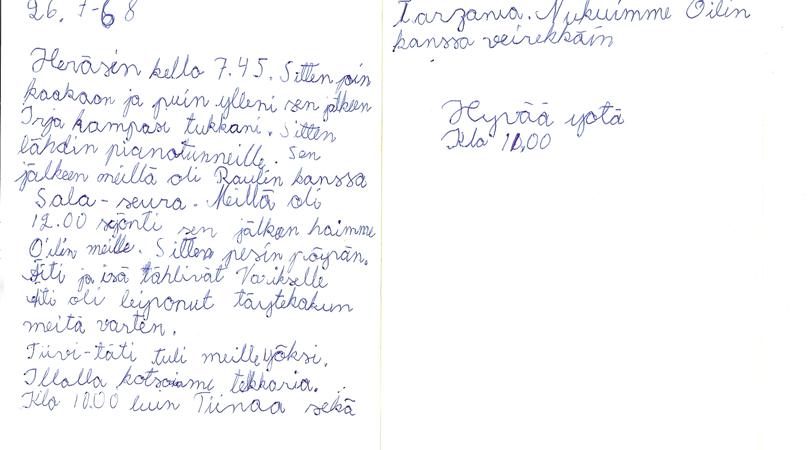 26. 7-68
Heräsin kello 7.45. Sitten join
kaakaon ja puin ylleni sen jälkeen
Irja kampasi tukkani. Sitten
lähdin pianotunneille. Sen
jälkeen meillä oli Raulin kanssa
Sala-seura. Meillä oli
12.00 syönti sen jälkeen haimme
Oilin meille. Sitten pesin pöyrän.
Äiti ja isä tählivät Varikselle
Äiti oli leiponut täytekakun
meitä varten.
Tiivi-täti tuli meille yöksi.
Illalla kotsoiame tekkaria.
Klo 10.00 luin Tiinaa sekä
Tarzania. Nukuimme Oilin
kanssa veirekkäin
Hyvää yotä
Klo 10,00